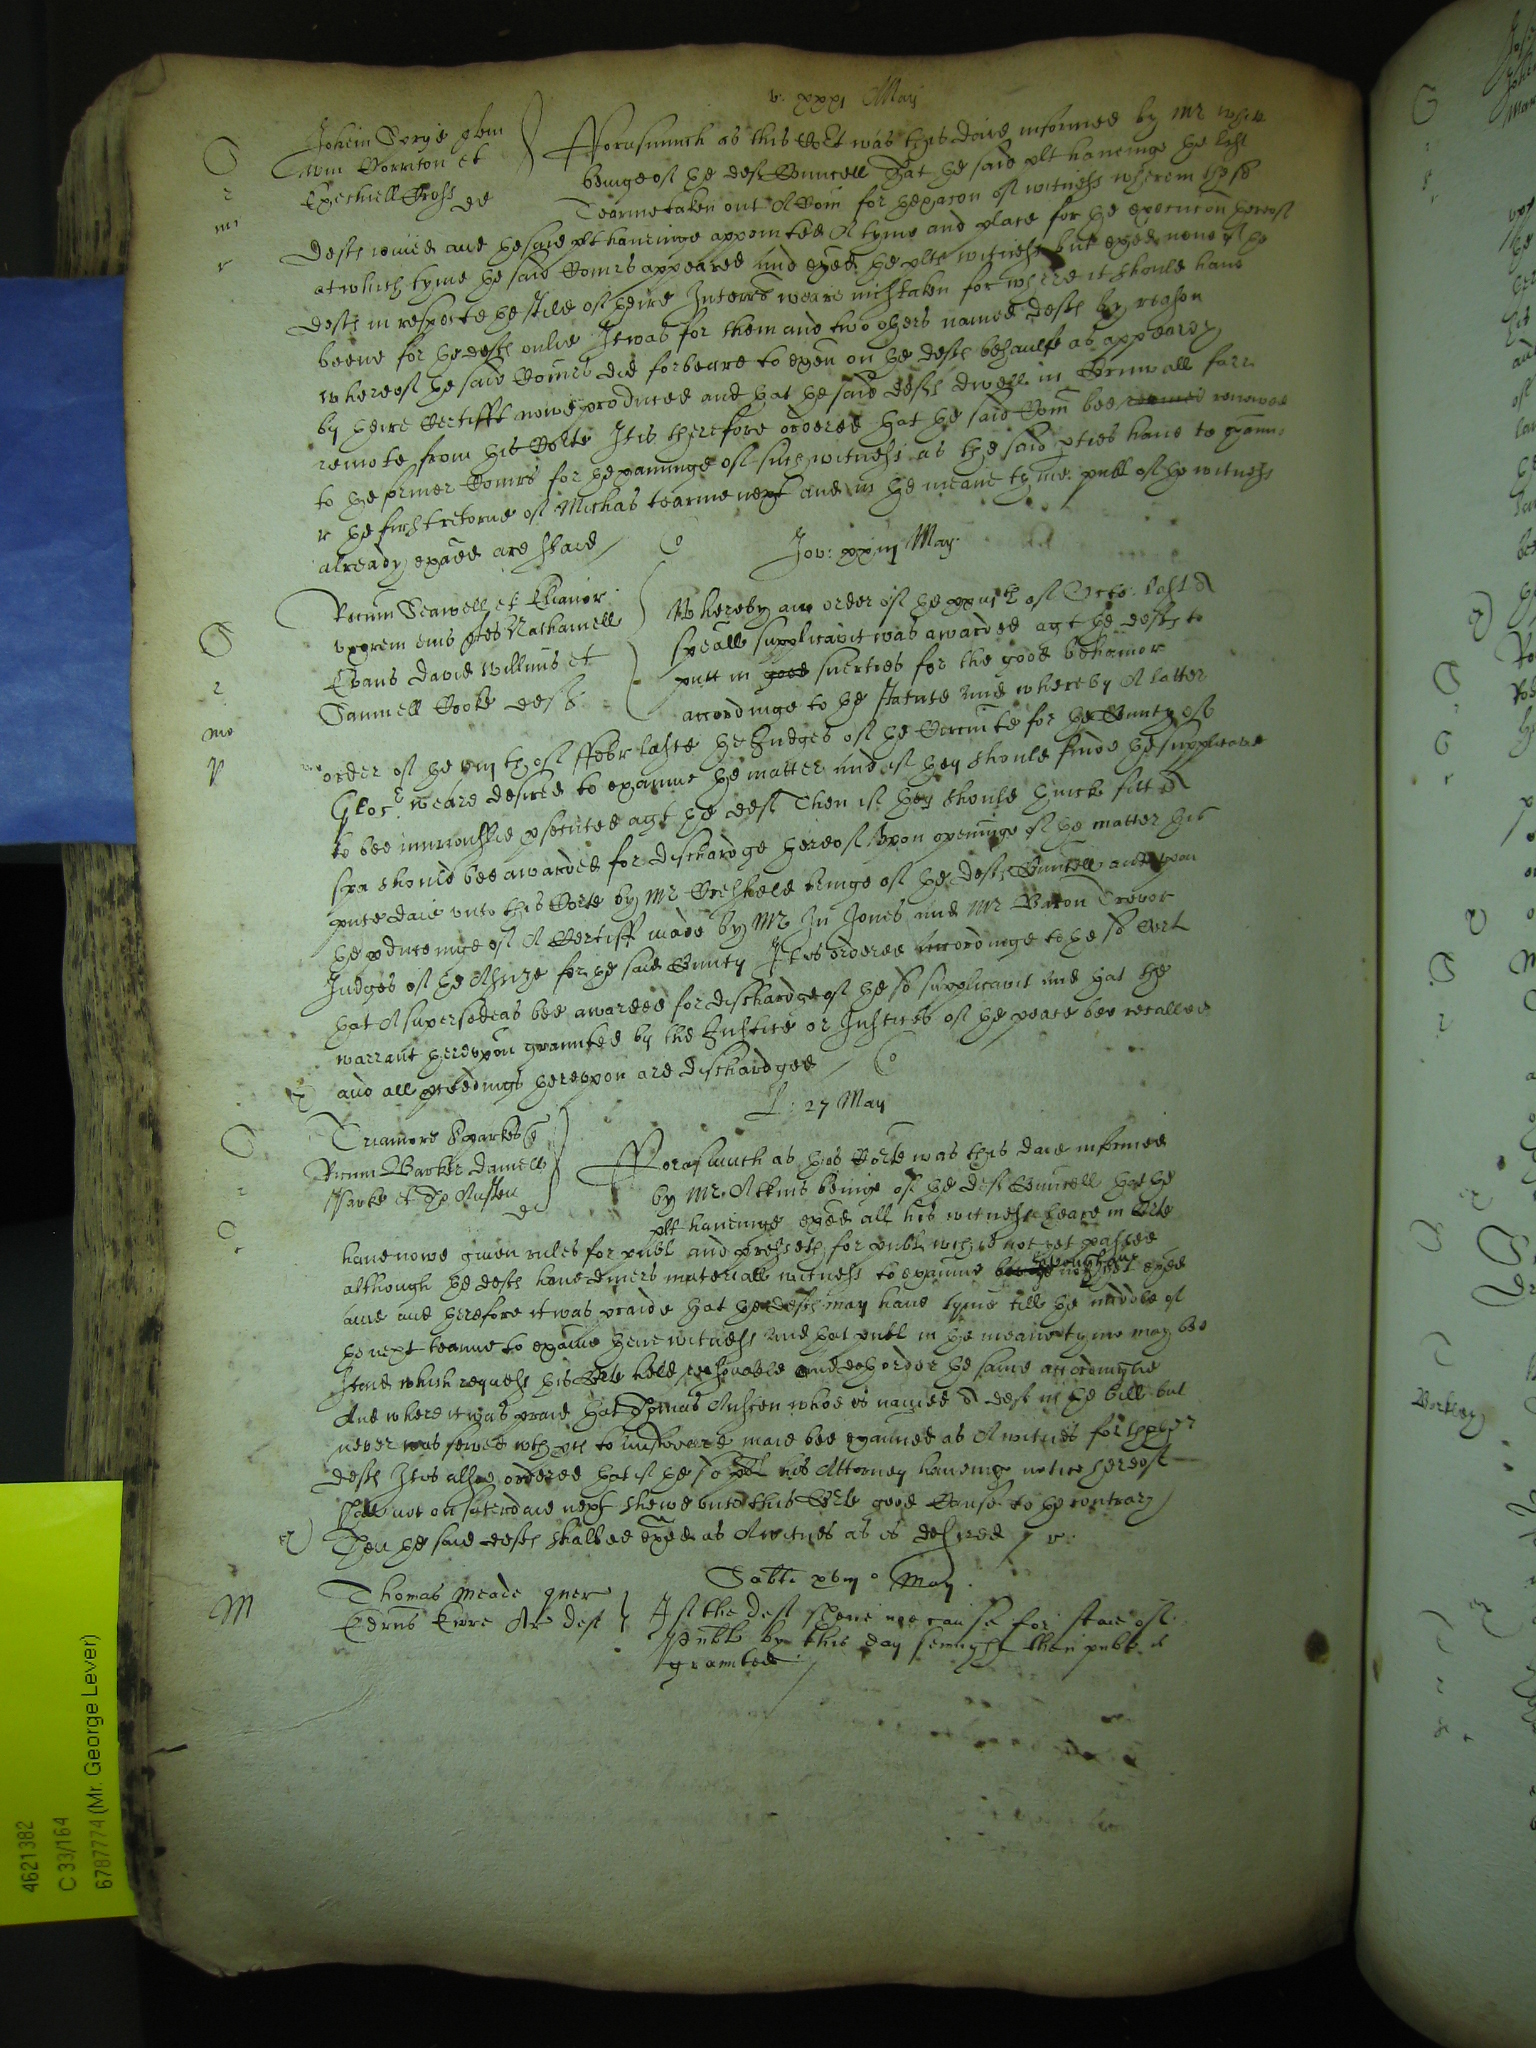 v: xxxi May
Johem Serge quer
Willm Corriton et
Ezechiell Crosse def
Forasmuch as this Cort was this daie informed by Mr White
beinge of the defts Councell That the said plt haveinge the last
Tearme taken out A Com for thexacon of witness wherein the sd
defts ioined and the said plt haveinge appointed A tyme and place for the execucon thereof
at which tyme the said Comrs appeared and exed the plts witness but exed none of the
defts in respecte the stile of theire Interres weare mistaken for where it should have
beene for the defts onlie It was for them and two others named defts by reason
whereof the said Comrs did forbeare to exen on the defts behaulfe as appeareth
by theire Certifft nowe produced and that the said defts dwell in Cornwall farr
remote from this Corte It is therefore ordered that the said Com bee renewed
to the former Comrs for thexaminge of such witness as the said pties have to examine
r the first retorne of Michas tearme next and in the meane tyme publ of the witness
already exaed are staid
Jov: xxiij May
Sarwell et Elianor
uxorem eius Nathaniell
Evans David Willims et
Samuell Cooke defts
Whereby an order of the of Octo: last A
speall supplicavit was awarded agt the defts to
putt in good suerties for the good behavior
accordinge to the statute And whereby A latter
order of the viij th of Febr laste the Judges of the Circuite for the County of
Gloc. weare desired to examine the matter and if they should finde the supplicavit
to bee uniustlie psecuted agt the deft Then if they should thincke fitt A
spa should bee awarded for dischardge thereof Upon openinge of the matter this
pnte daie unto this Corte by Mr beinge of the defts Councell and upon
the pduceinge of A Certiff made by Mr Ju Jones and Mr Baron Trevor
Judges of the Assize for the said County It is ordered accordinge to the sd Cert
that A supersedeas bee awarded for dischardge of the sd supplicavit and that the
warrant thereupon graunted by the Justice or Justices of the peace bee recalled
and all pceedings thereupon are dischardged
L: 27 May
Triamore Sparkes q
Barker Daniell
et Tho Austen
d
Forasmuch as this Corte was this daie informed
by Mr Atkins beinge of the deft Councell that the
plt haveinge exed all his witness heare in Corte
have nowe given rules for publ and presseth for publ which is not yet passed
although the defts have divers materiall witness to examine not yet exed
and therefore it was praide that the defts may have tyme till the middle of
the next tearme to examine theire witness And that publ in the meane tyme may bee
staid which request this Corte held reasonable and doth order the same accordinglie
And where it was praied that Thomas Austen whoe is named A deft in the bill but
never was served with pcs to answeare maie bee examined as A witnes for thother
defts It is alsoe ordered that if the sd plt his Attorney haveinge notice hereof
shall not on saterdaie next shewe unto this Corte good Cause to the contrary
Then the said deft shalbee exed as A witnes as is desired
Sabti xviij o May
Thomas Meade quer
Edrus Ewre Ar deft
If the deft shewe noe cause for staie of
publ by this day sennight then publ is
graunted
M
4621382
C 33/164
6787774 (Mr. George Lever)